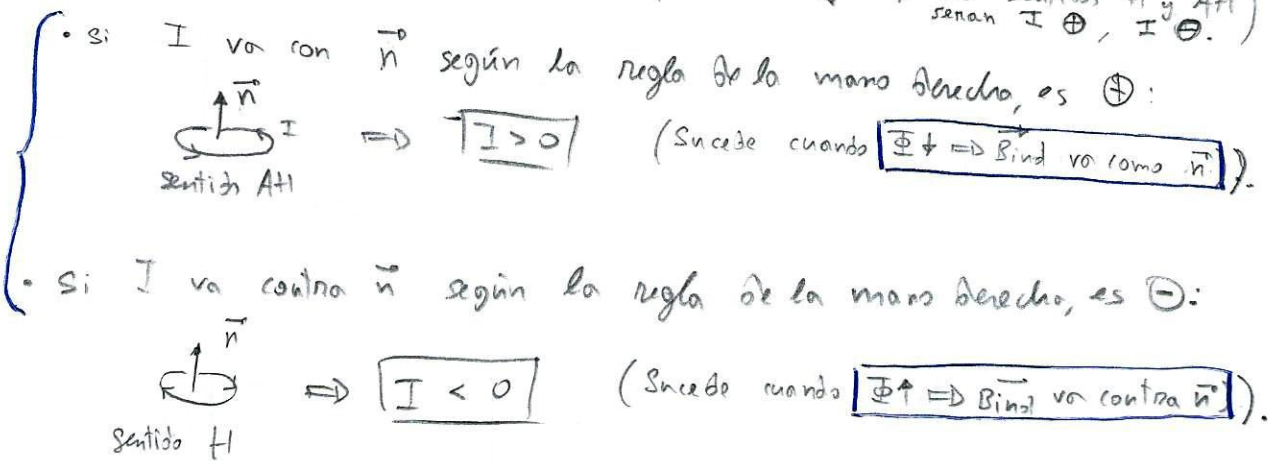 y AH)
serian I ⊕, I ⊖.)
• Si I va con n⃗ según la regla de la mano derecha, es ⊕:
n⃗
I ⇒ I > 0 (Sucede cuando Φ↓ ⇒ B⃗ind va como n⃗).
sentido AH
• Si I va contra n⃗ según la regla de la mano derecha, es ⊖:
n⃗
⇒ I < 0 (Sucede cuando Φ↑ ⇒ B⃗ind va contra n⃗).
sentido H